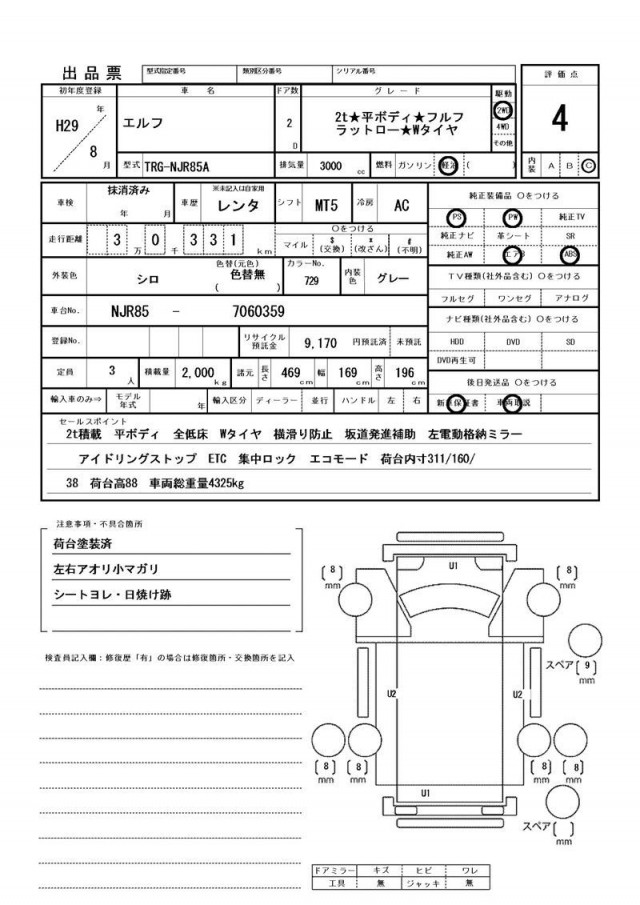 出品票 型式指定番号 類別区分番号 シリアル番号 評価点
初年度登録 車名 ドア数 グレード 駆動
H29 年 8 月 エルフ 2 D 2t★平ボディ★フルフラットロー★Wタイヤ 2WD 4WD その他 4
型式 TRG-NJR85A 排気量 3000 cc 燃料 ガソリン 軽油 ( ) 内装 A B C
車検 抹消済み 年 月 車歴 ※未記入は自家用 レンタ シフト MT5 冷房 AC 純正装備品 〇をつける
走行距離 3 万 0 千 3 3 1 km 〇をつける マイル $ (交換) * (改ざん) # (不明) PS PW 純正TV
純正ナビ 革シート SR
純正AW エアB ABS
外装色 シロ 色替(元色) 色替無 ( ) カラーNo. 729 内装色 グレー TV種類(社外品含む) 〇をつける
フルセグ ワンセグ アナログ
車台No. NJR85 - 7060359 ナビ種類(社外品含む) 〇をつける
登録No. リサイクル預託金 9,170 円預託済 未預託 HDD DVD SD
DVD再生可
定員 3 人 積載量 2,000 kg 諸元 長さ 469 cm 幅 169 cm 高さ 196 cm 後日発送品 〇をつける
輸入車のみ⇒ モデル年式 年 輸入区分 ディーラー 並行 ハンドル 左 右 新車保証書 車両取説
セールスポイント
2t積載 平ボディ 全低床 Wタイヤ 横滑り防止 坂道発進補助 左電動格納ミラー
アイドリングストップ ETC 集中ロック エコモード 荷台内寸311/160/
38 荷台高88 車両総重量4325kg
注意事項・不具合箇所
荷台塗装済
左右アオリ小マガリ
シートヨレ・日焼け跡
検査員記入欄:修復歴「有」の場合は修復箇所・交換箇所を記入
U1
[8] mm [8] mm
スペア [9] mm
U2 U2
[8] mm [8] mm [8] mm [8] mm
U1
スペア [ ] mm
ドアミラー キズ ヒビ ワレ
工具 無 ジャッキ 無